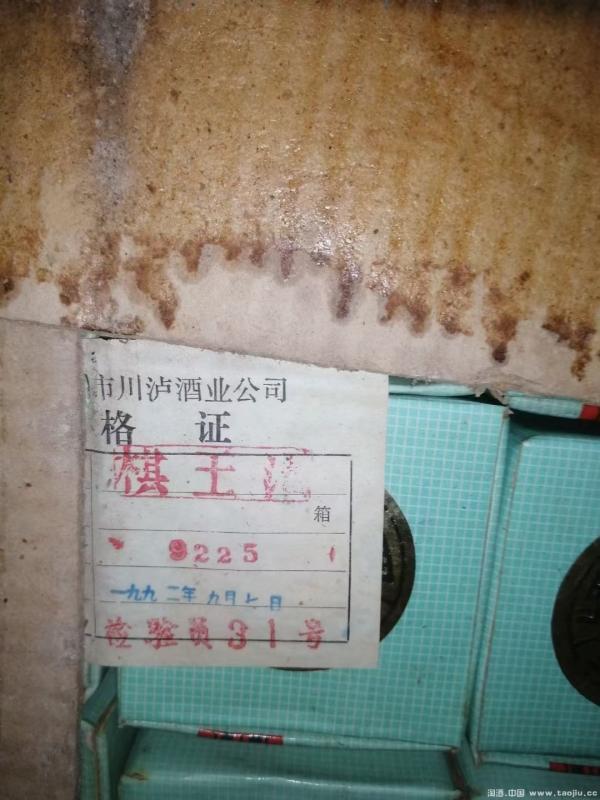 市川泸酒业公司
格 证
棋王酒
箱
9225
一九九二年九月七日
检验员31号
淘酒.中国 www.taojiu.cc